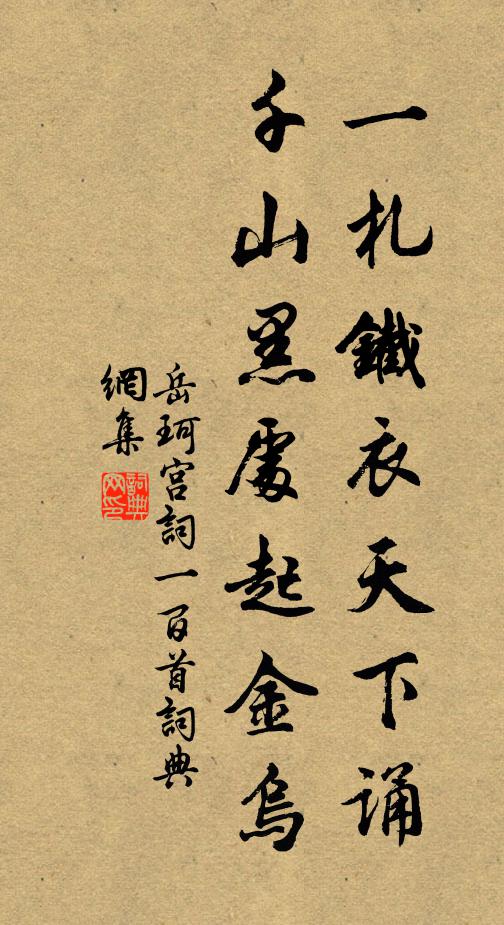 一札鐵衣天下誦
千山黑處起金烏
岳珂宮詞一百首詞典
網集
詞典
网印